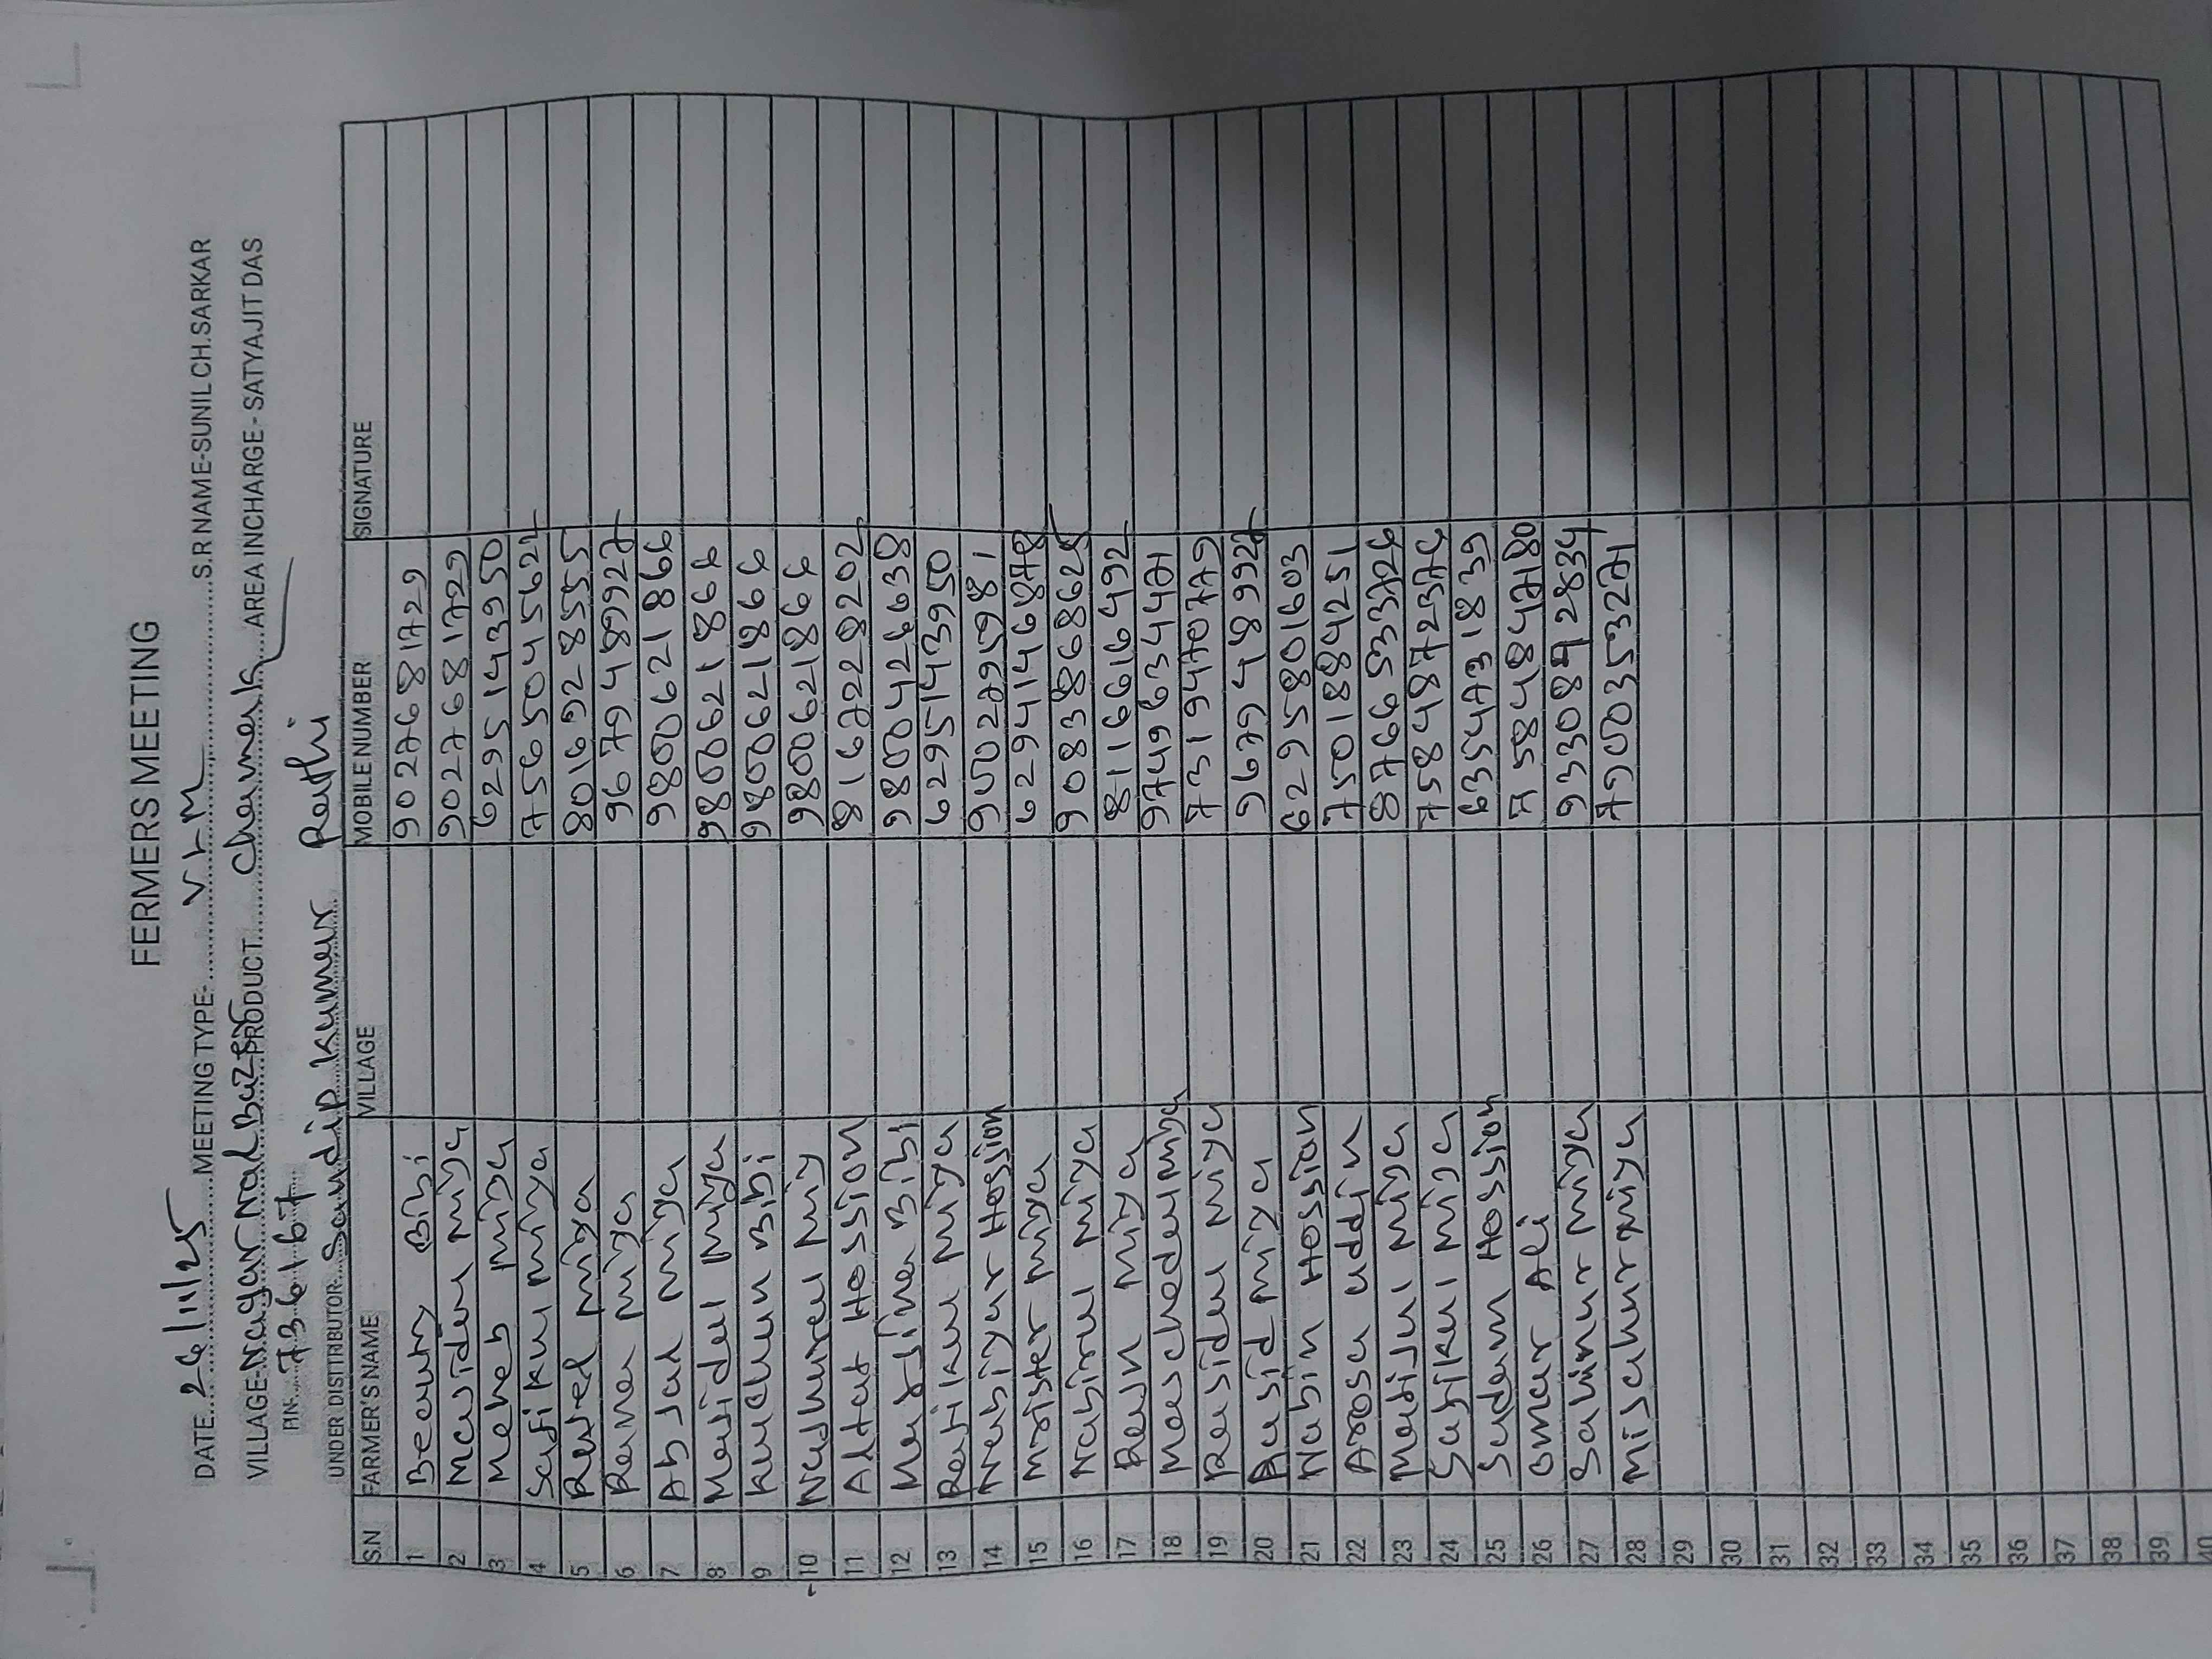 FERMERS MEETING
DATE...26/11/25...MEETING TYPE-...V.r.M...S.R NAME-SUNIL CH.SARKAR
VILLAGE-Nagar Nal Buzar PRODUCT...AREA INCHARGE- SATYAJIT DAS
PIN-736167
UNDER DISTRIBUTOR-Sandip Kumar Rathi
S.N FARMER'S NAME VILLAGE MOBILE NUMBER SIGNATURE
1 Bibi 9027681729
2 Mavidur miya 9027681729
3 Meheb miya 6295143950
4 Safikul miya 7565045622
5 Rubel miya 8016928555
6 Rana miya 9679489927
7 Absar miya 9800621866
8 Maidul miya 9800621866
9 Kulsun Bibi 9800621866
10 miy 9800621866
11 Altaf Hossion 8167229202
12 Bibi 9800426638
13 Rafikul miya 6295143950
14 Nabiyur Hossion
15 Mister miya 6294146878
16 Nabirul miya 9083868625
17 miya 8116616492
18 miya 9749634471
19 Rasidul miya 7319470779
20 Rasid miya 9679489927
21 Nabin Hossian 6295801603
22 uddin 7501884251
23 Mafijul miya 8766533726
24 Safikul miya
25 Sudam Hossion
26 Omar Ali 7584847180
27 Salinur miya 9330892834
28 miya
29
30
31
32
33
34
35
36
37
38
39
40